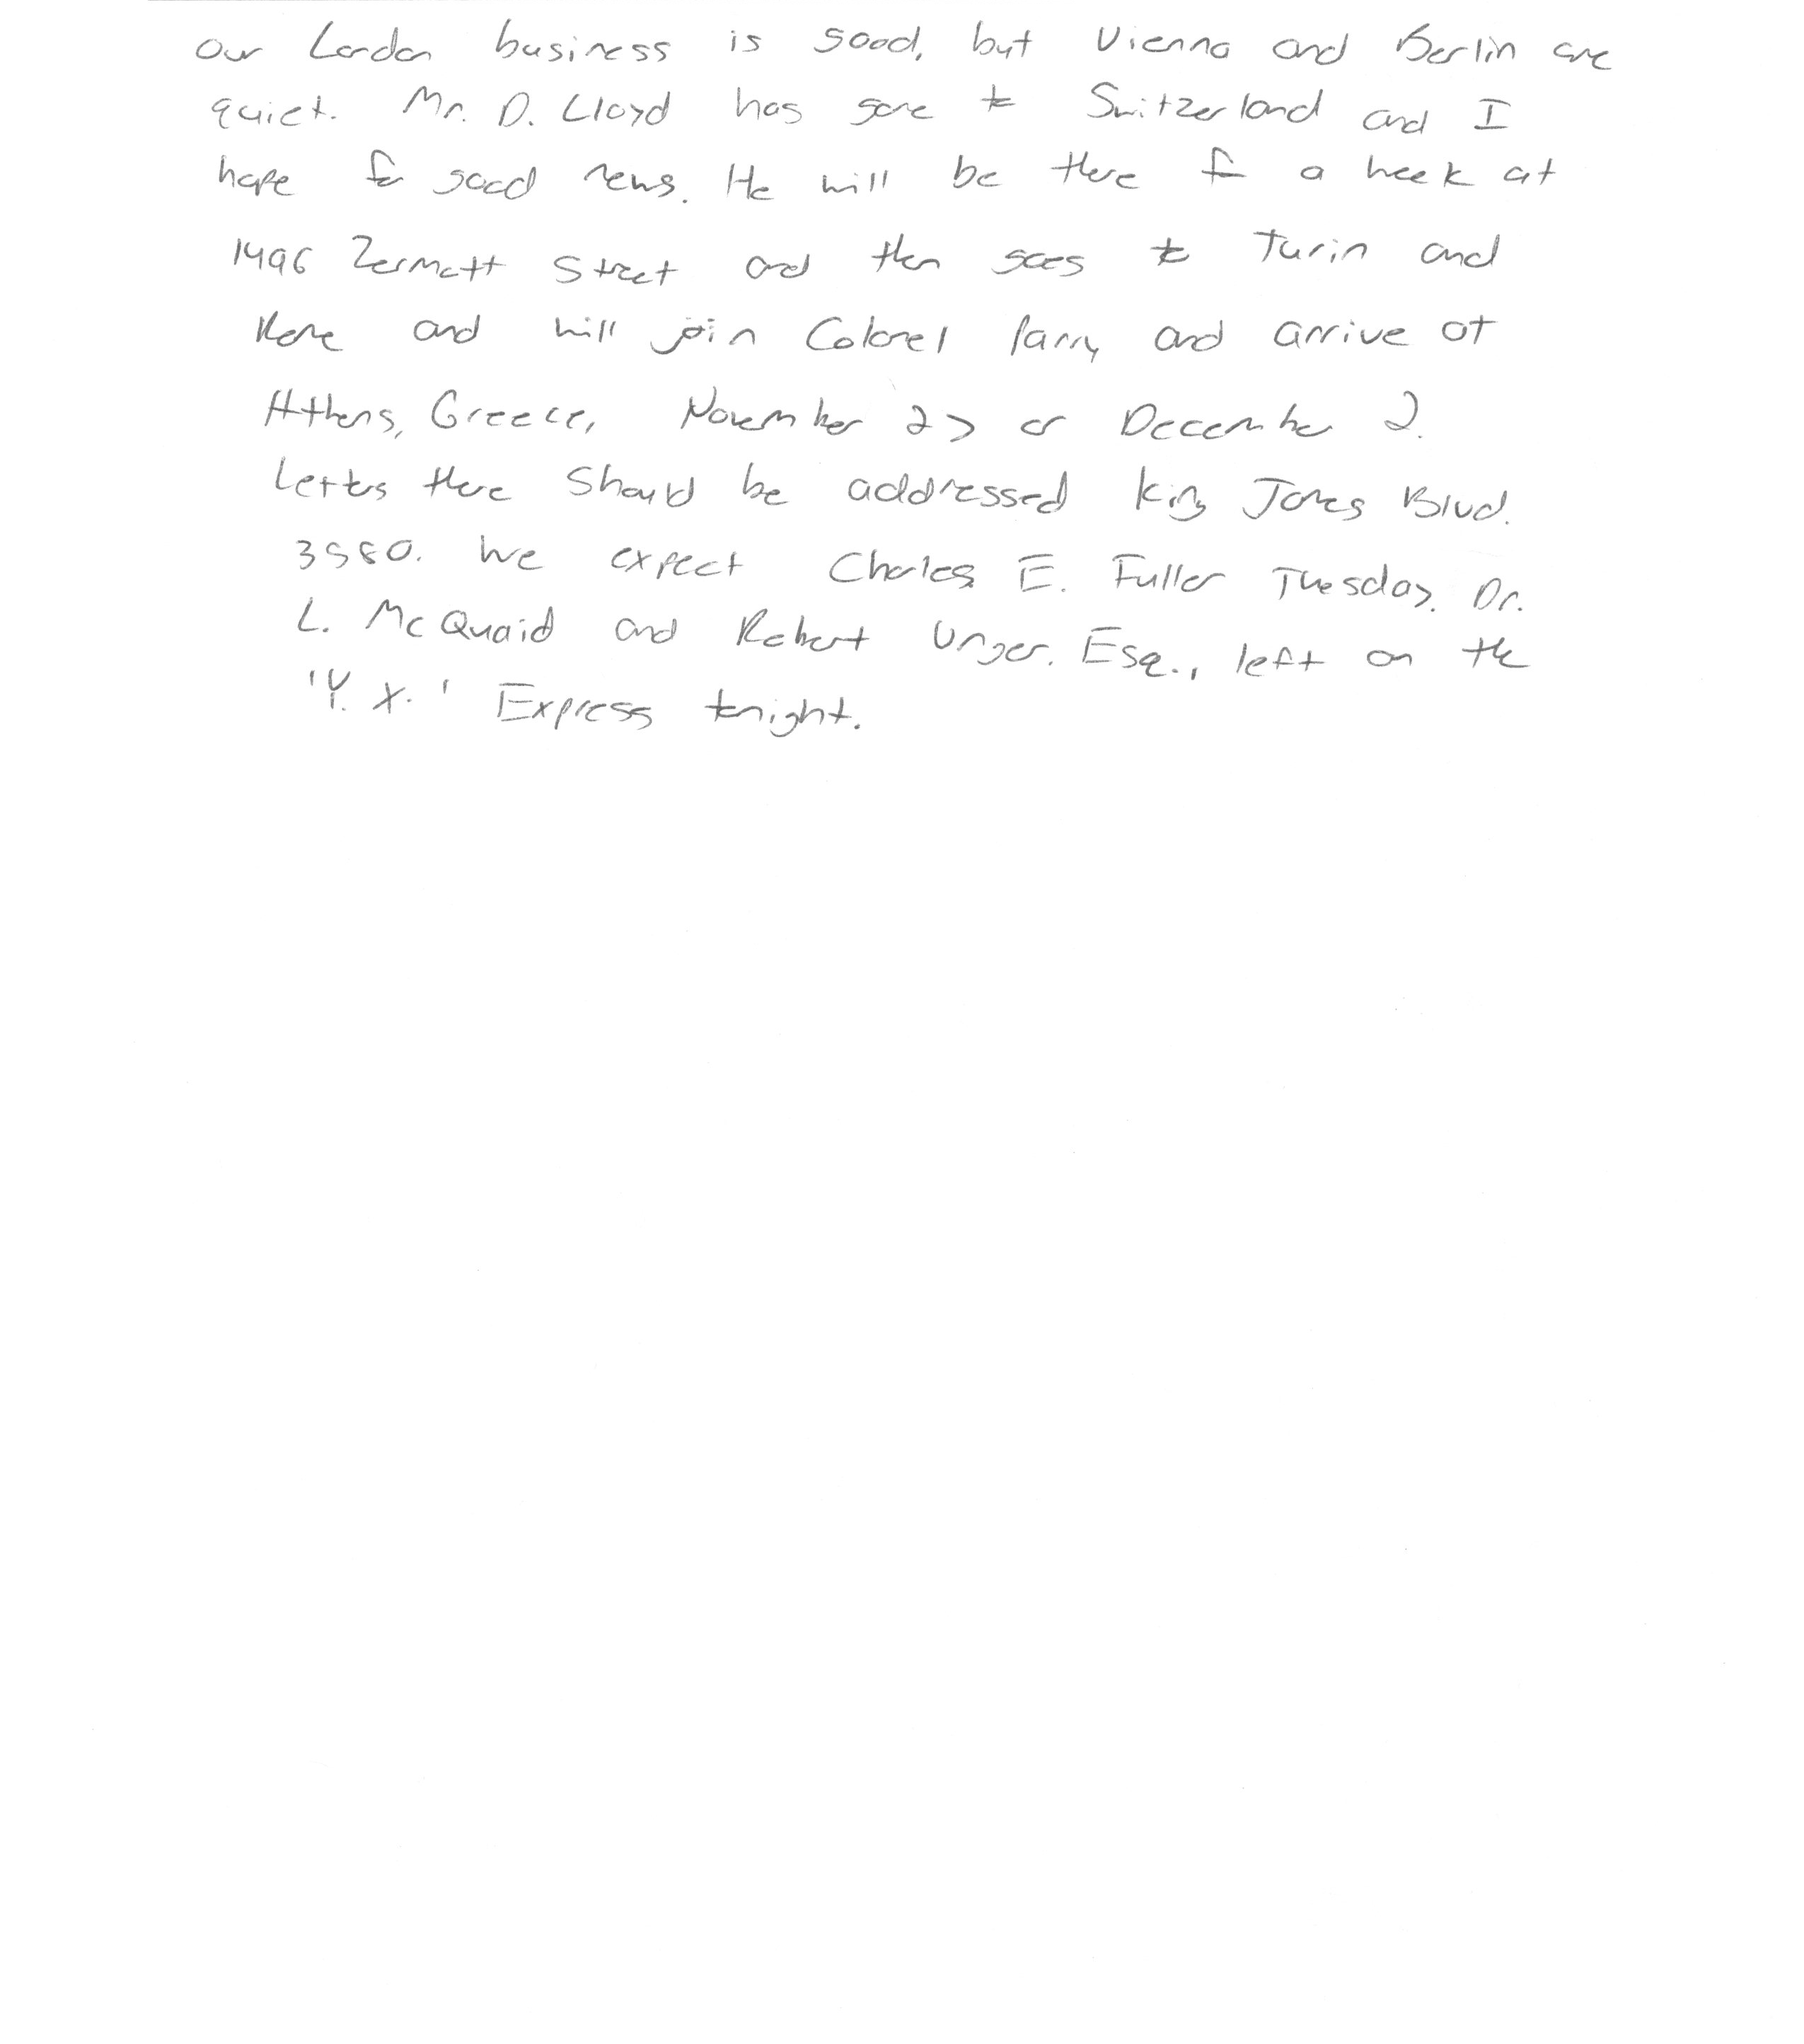 Our London business is good, but Vienna and Berlin are
quiet. Mr. D. Lloyd has gone to Switzerland and I
hope for good news. He will be there for a week at
1496 Zermatt Street and then goes to Turin and
Rome and will join Colonel Parry and arrive at
Athens, Greece, November 27 or December 2.
Letters there should be addressed King James Blvd.
3580. We expect Charles E. Fuller Tuesday. Dr.
L. McQuaid and Robert Unger, Esq., left on the
'Y. X.' Express tonight.